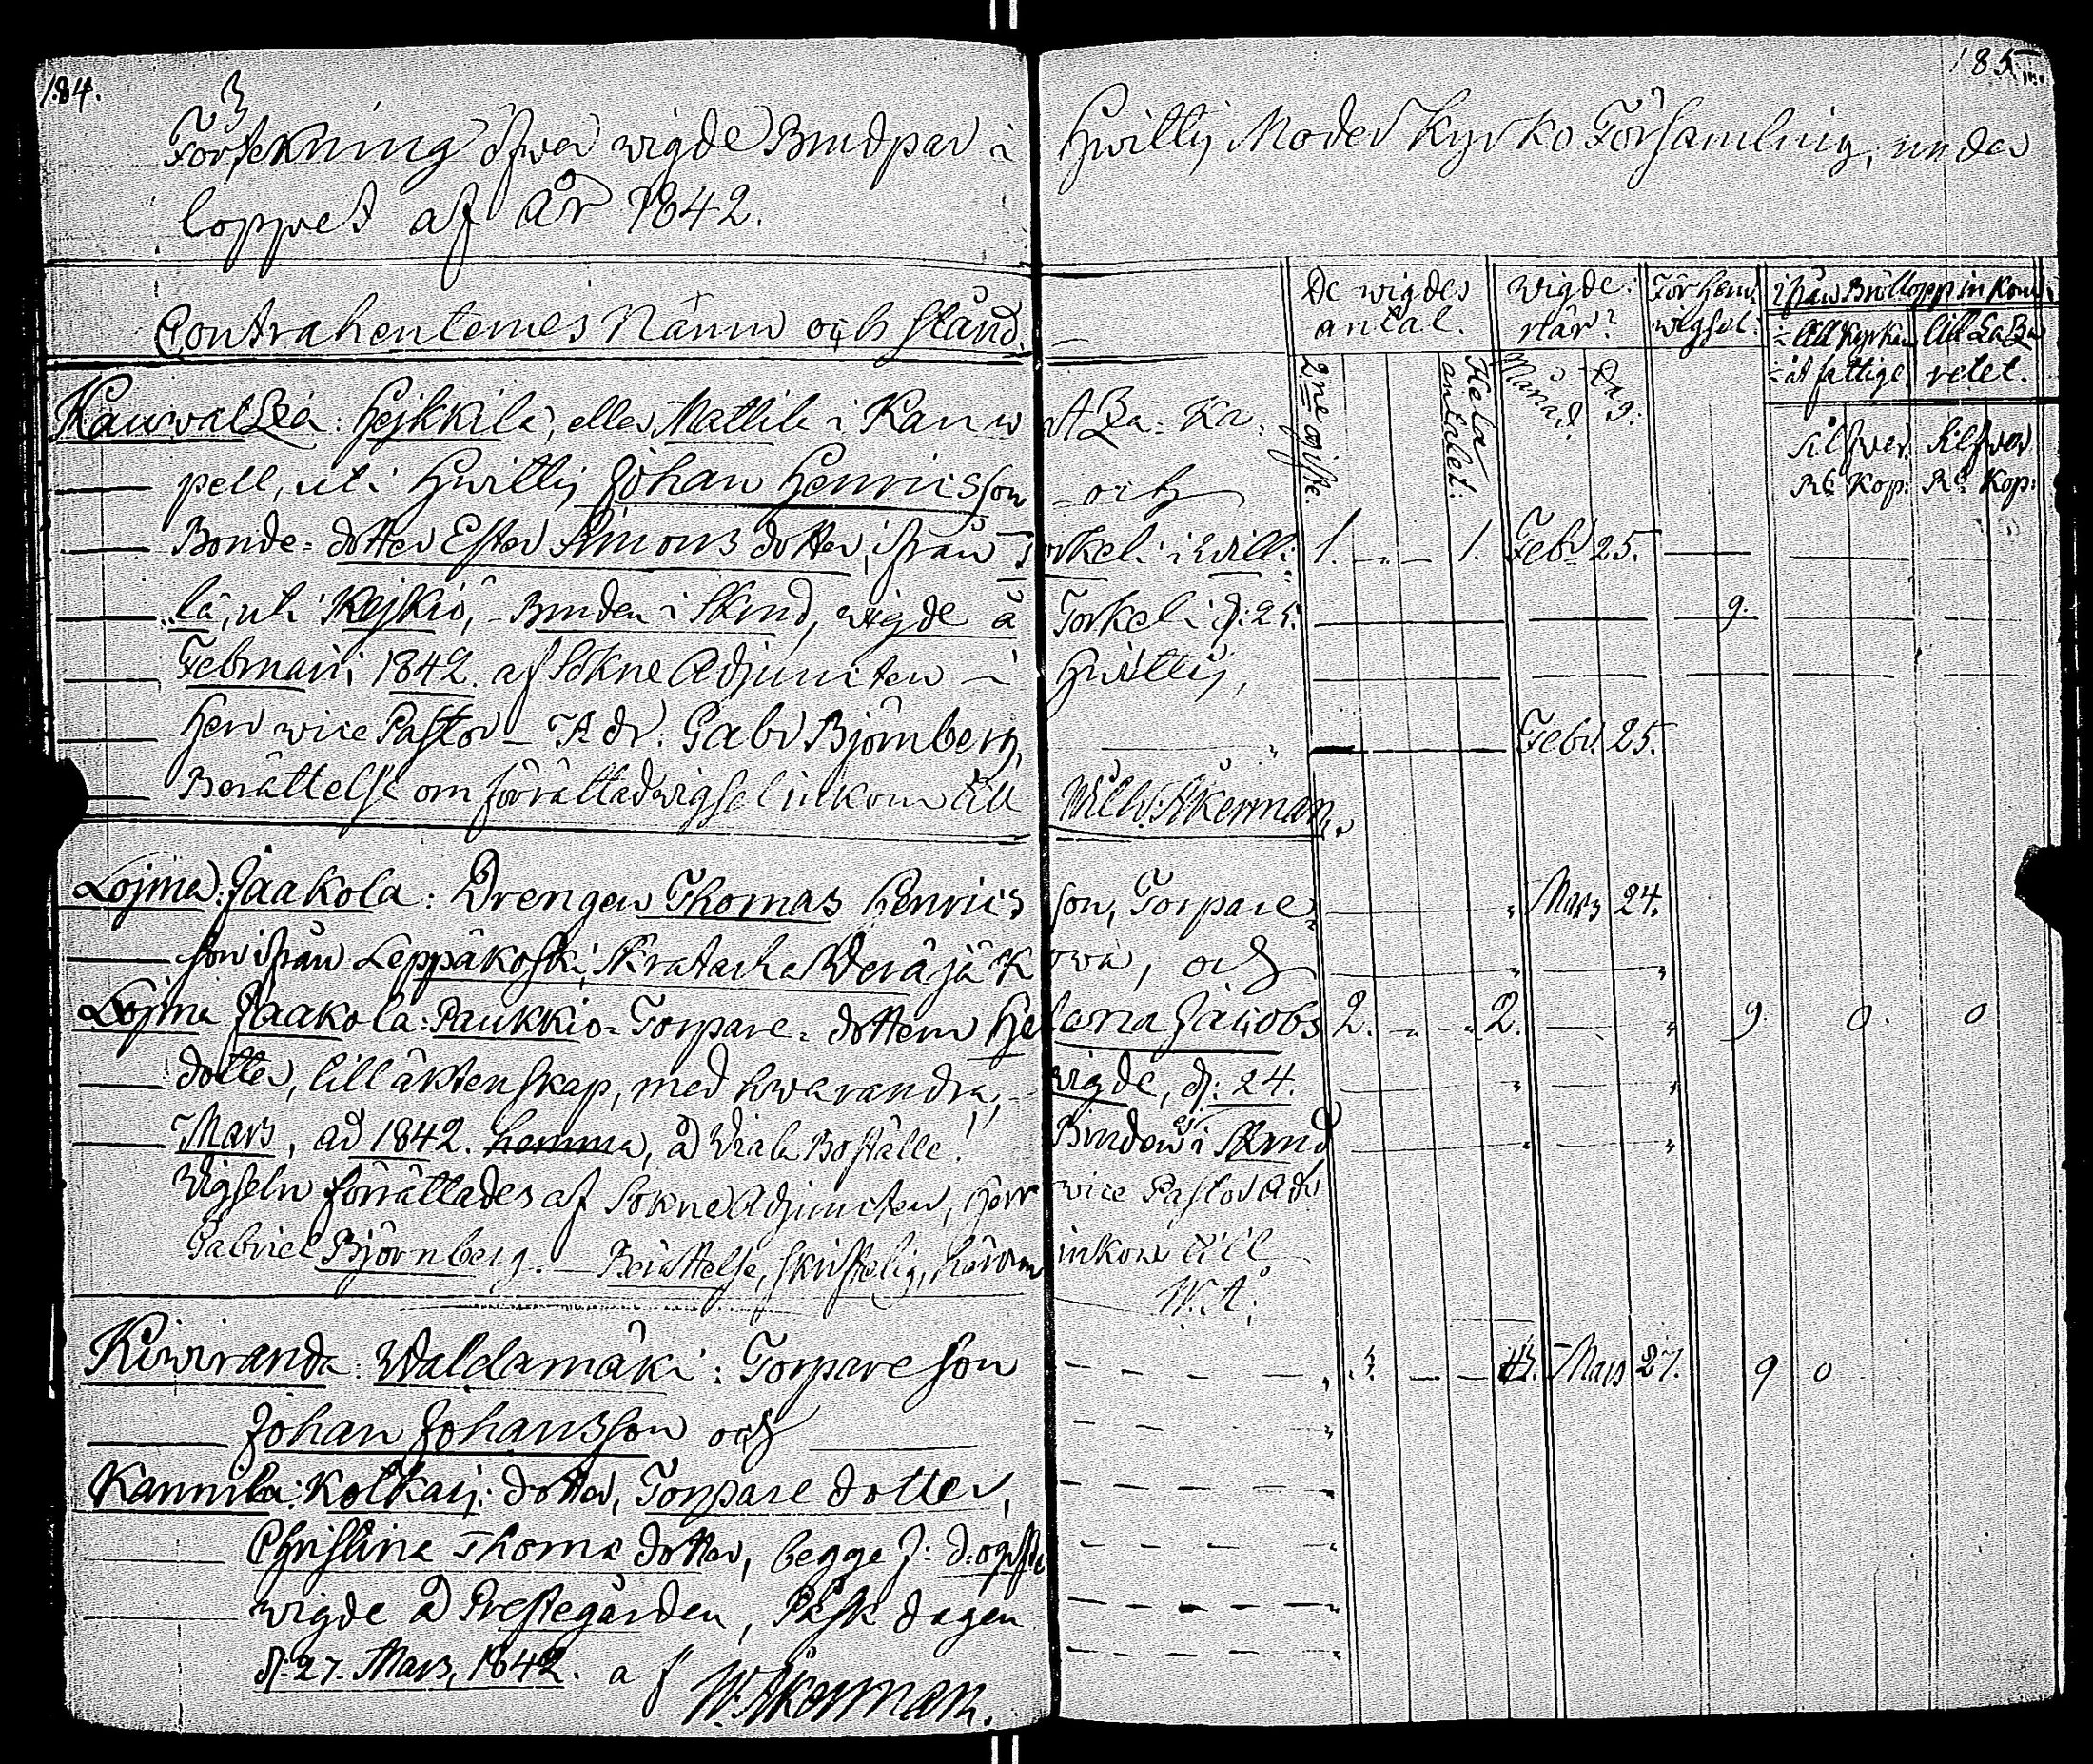 184.
185.
Förtekning öfwer wigde Brudpar i Hwittis Moder Kyrko Församling, under
loppet af år 1842.
Contrahenternes Nämn och stånd.
De wigdes antal.
Wigde: när?
För hem wigsel:
ifrån Bröllopp inkom:
till Kyrkan
åt fattige
till Laza retet.
2ne gifte.
Hela antalet:
Månad.
Dag:
Silfver. Silfver
Rb. Kop: Rb. Kop:
Kauwatza: Hejkkilä, eller Mattila i Kauwatza: Ka:
pell, uti Hwittis Johan Henricsson och
Bonde-dotter Ester Simons dotter, ifrån Torkeli i Willi 1. 1. Febr 25.
lä, uti Kejkiö, Bruden i Skrud, wigde å Torkeli d: 25. 9.
Februari 1842. af Sokne Adjuncten i Hwittis,
Herr vice Pastor Adr: Gabr Björnberg, Febr. 25.
Berättelse om förrättad wigsel inkom till Wilh. Åkerman.
Lojma: Jaakola: Drengen Thomas Henrics son, Torpare Mars 24.
son ifrån Leppäkoski, och
Lojma Jaakola: Paukkio Torpare-dottern Helena Jacobs 2. 2. 9. 0. 0
dotter, till äktenskap, med hwarandra, wigde, d: 24.
Mars, ad 1842. hemma, å Wiala Boställe! Bruden i Skrud
Wigseln förrättades af Sokne Adjuncten, Herr vice Pastor Adr
Gabriel Björnberg. Berättelse, skriftelig, härom inkom till
W. Å.
Kiwiranda: Waldamäki: Torpare son 3. 3. Mars 27. 9 0
Johan Johansson och
Kannila: Kolkaij: dotter, Torpare dotter,
Christina Thoma dotter, begge ogifte
wigde å Prestegården, Påsk dagen
d. 27. Mars, 1842. af W. Åkerman.